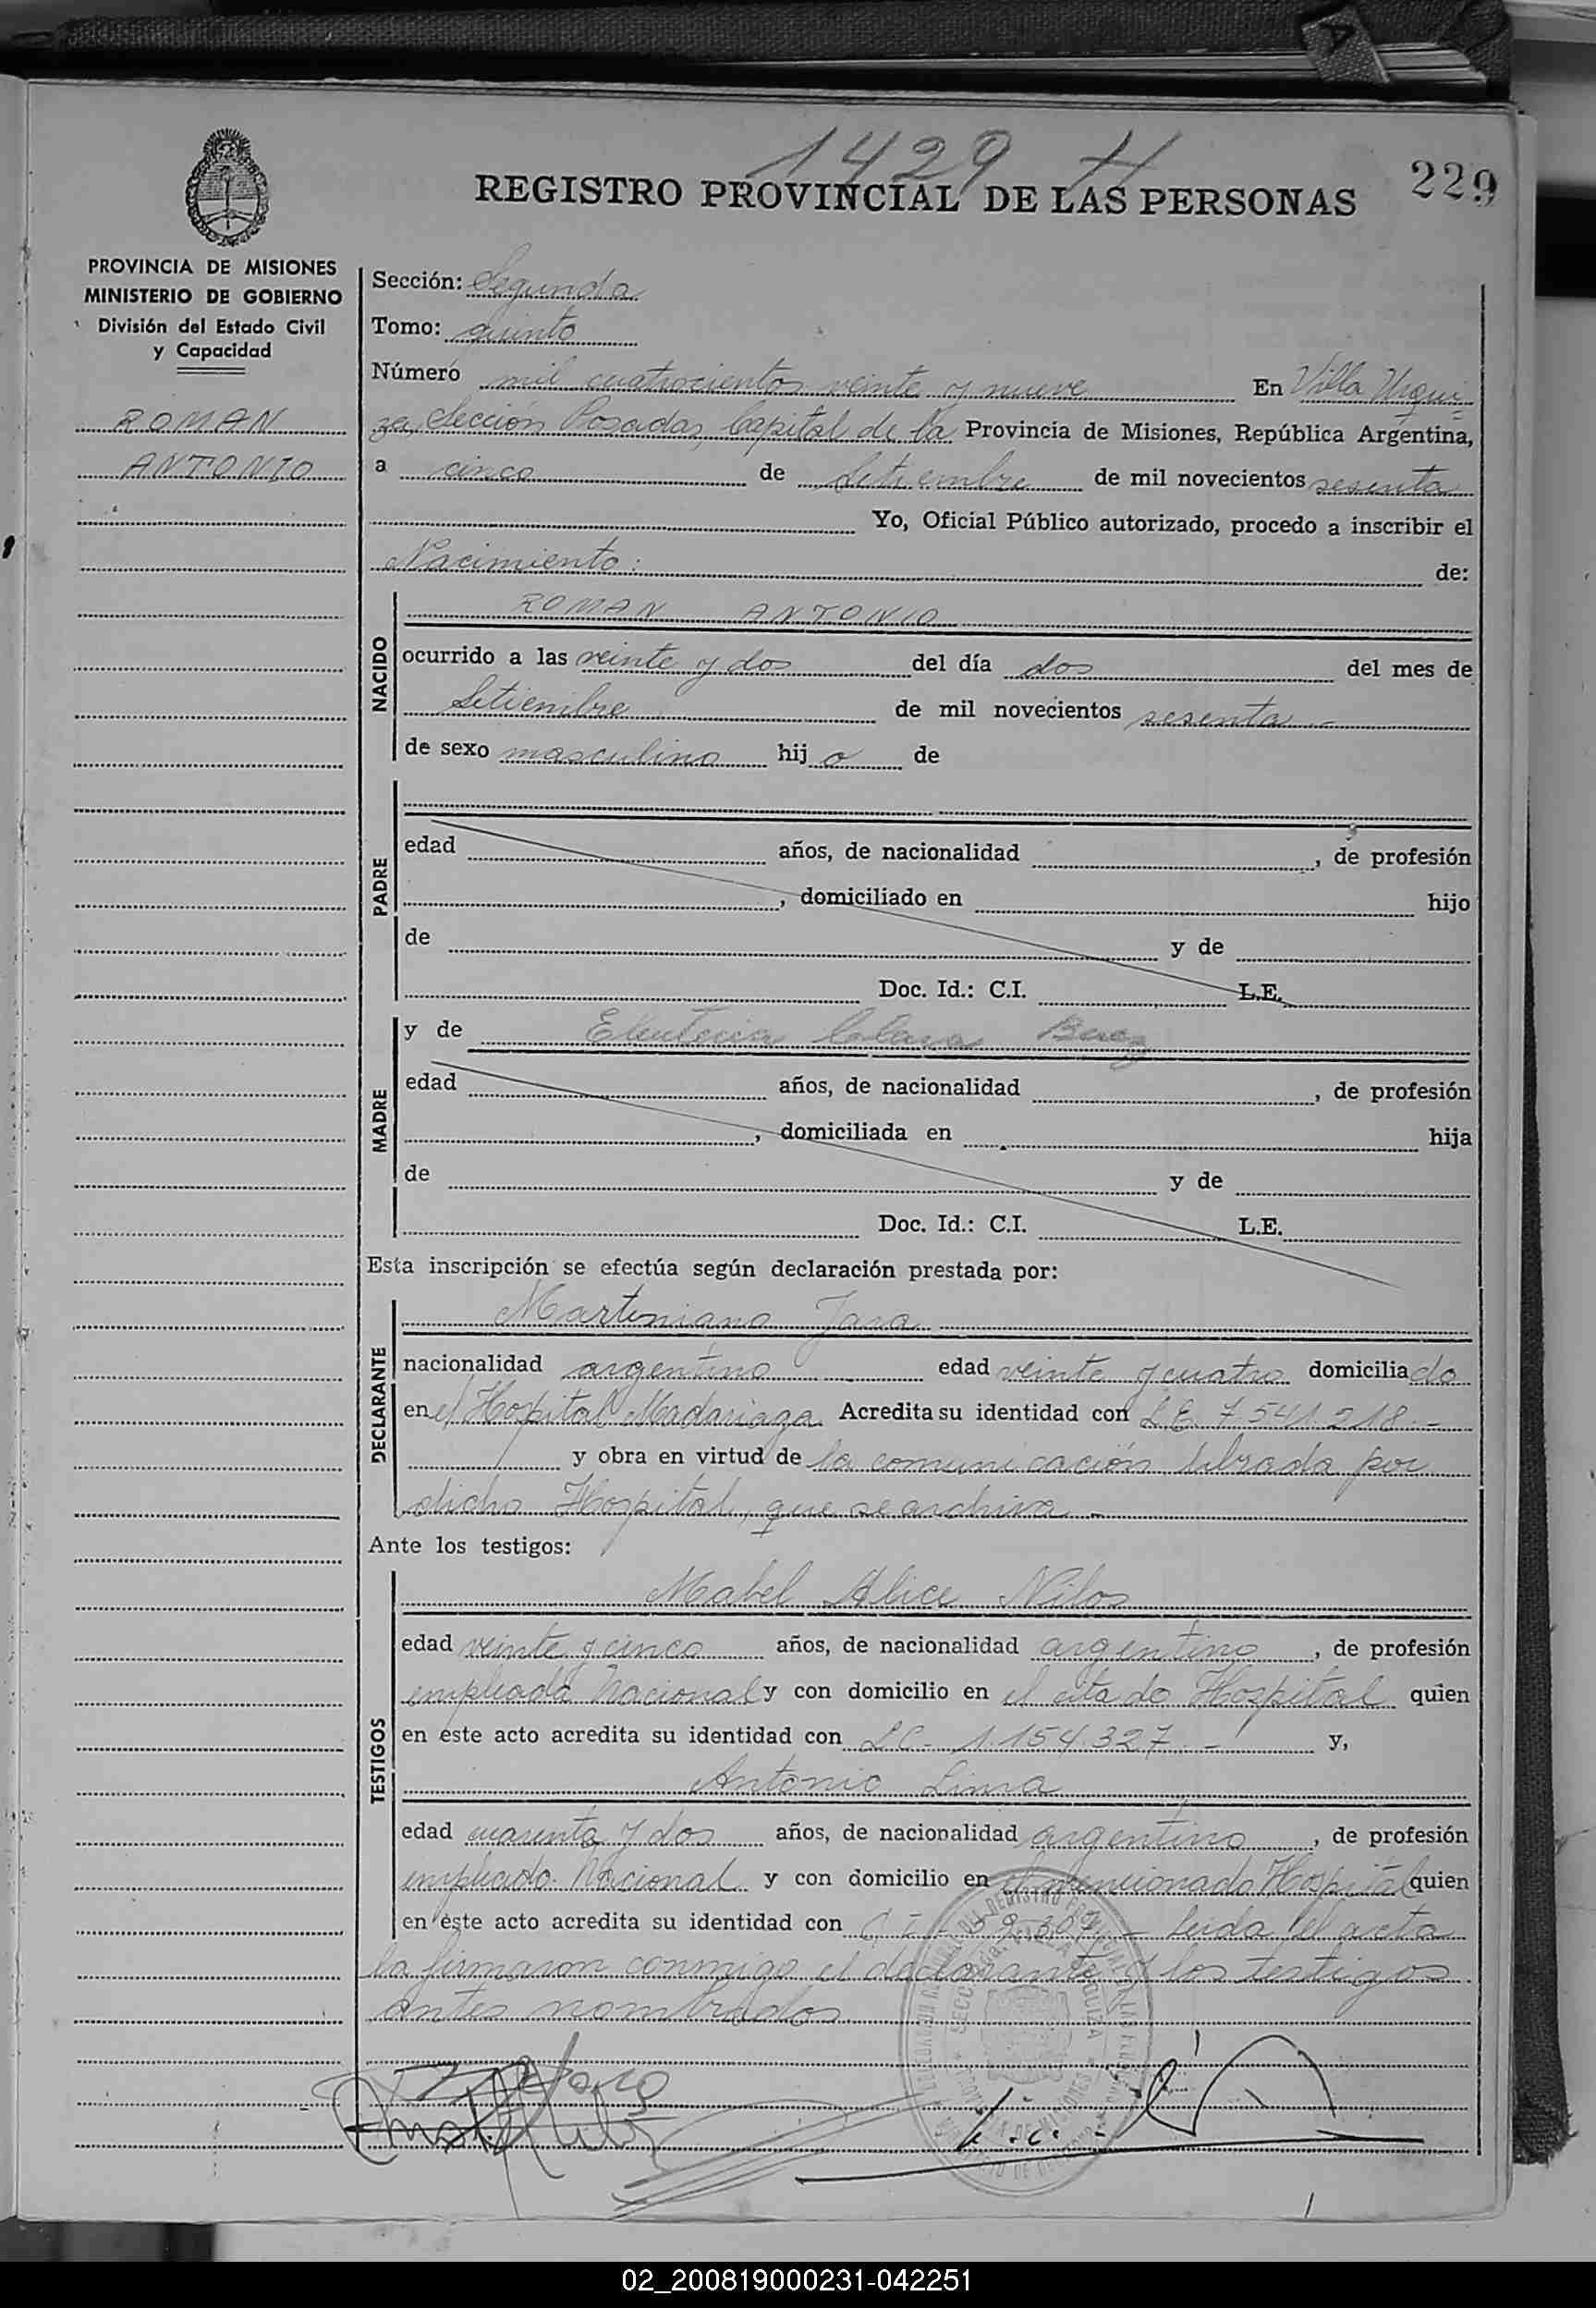 A
1429 H
REGISTRO PROVINCIAL DE LAS PERSONAS
229
PROVINCIA DE MISIONES
MINISTERIO DE GOBIERNO
División del Estado Civil
y Capacidad
ROMAN
ANTONIO
Sección: Segunda
Tomo: quinto
Número mil cuatrocientos veinte y nueve En Villa Urqui
za, Sección Posadas, Capital de la Provincia de Misiones, República Argentina,
a cinco de Setiembre de mil novecientos sesenta
Yo, Oficial Público autorizado, procedo a inscribir el
Nacimiento: de:
NACIDO
ROMAN ANTONIO
ocurrido a las veinte y dos del día dos del mes de
Setiembre de mil novecientos sesenta -
de sexo masculino hijo de
PADRE
edad años, de nacionalidad , de profesión
, domiciliado en hijo
de y de
Doc. Id.: C.I. L.E.
MADRE
y de Eleuteria Baez
edad años, de nacionalidad , de profesión
, domiciliada en hija
de y de
Doc. Id.: C.I. L.E.
Esta inscripción se efectúa según declaración prestada por:
DECLARANTE
Martiniano Jara
nacionalidad argentino edad veinte y cuatro domiciliado
en el Hospital Madariaga Acredita su identidad con L E 7541.218.-
y obra en virtud de la comunicación librada por
dicho Hospital, que se archiva -
Ante los testigos:
TESTIGOS
Mabel Alice Nilos
edad veinte y cinco años, de nacionalidad argentina, de profesión
empleada Nacional y con domicilio en el citado Hospital quien
en este acto acredita su identidad con LC- 1.154.327.- y,
Antonio Lima
edad cuarenta y dos años, de nacionalidad argentino, de profesión
empleado Nacional y con domicilio en el mencionado Hospital quien
en este acto acredita su identidad con C I - leida el acta
la firmaron conmigo el declarante y los testigos
antes nombrados.
02_200819000231-042251